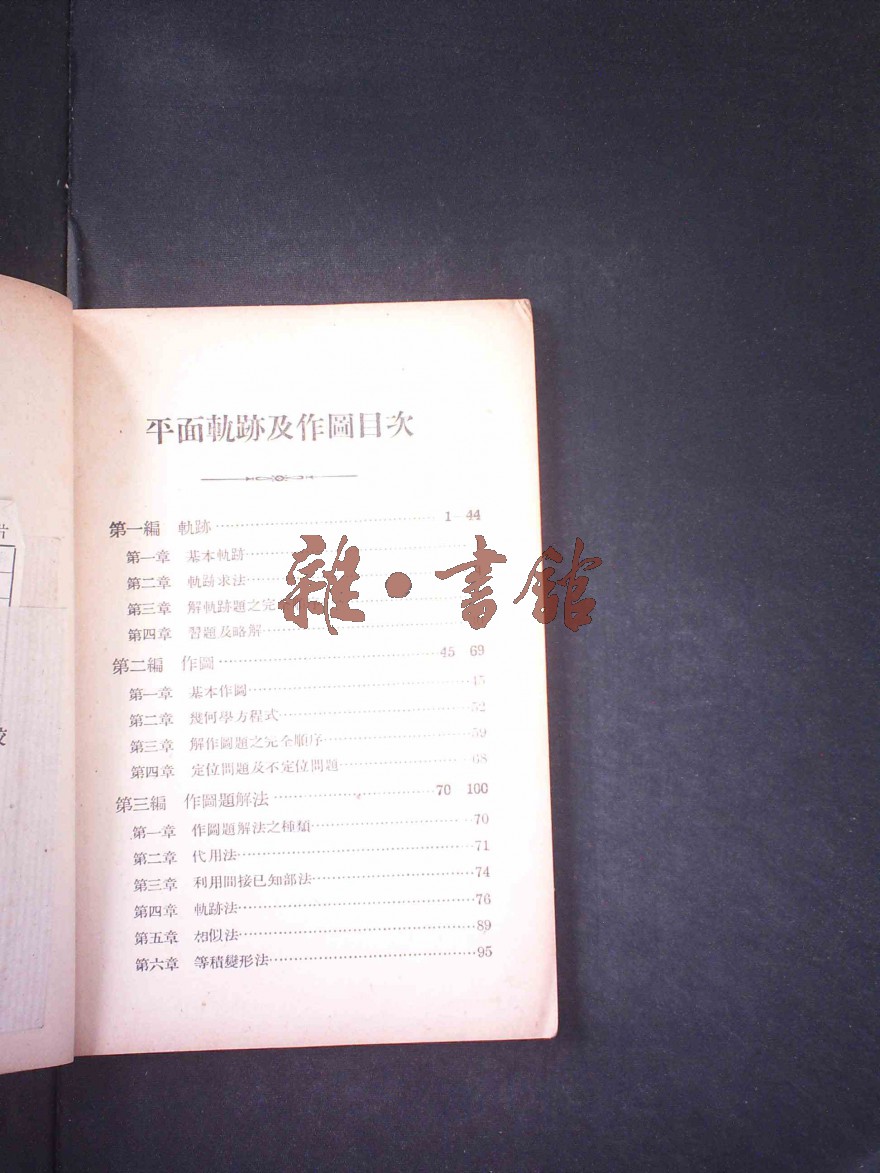 平面軌跡及作圖目次
第一編 軌跡 1—44
第一章 基本軌跡
第二章 軌跡求法
第三章 解軌跡題之完
第四章 習題及略解
第二編 作圖 45 69
第一章 基本作圖 45
第二章 幾何學方程式 52
第三章 解作圖題之完全順序 59
第四章 定位問題及不定位問題 68
第三編 作圖題解法 70 100
第一章 作圖題解法之種類 70
第二章 代用法 71
第三章 利用間接已知部法 74
第四章 軌跡法 76
第五章 相似法 89
第六章 等積變形法 95
雜·書館
片